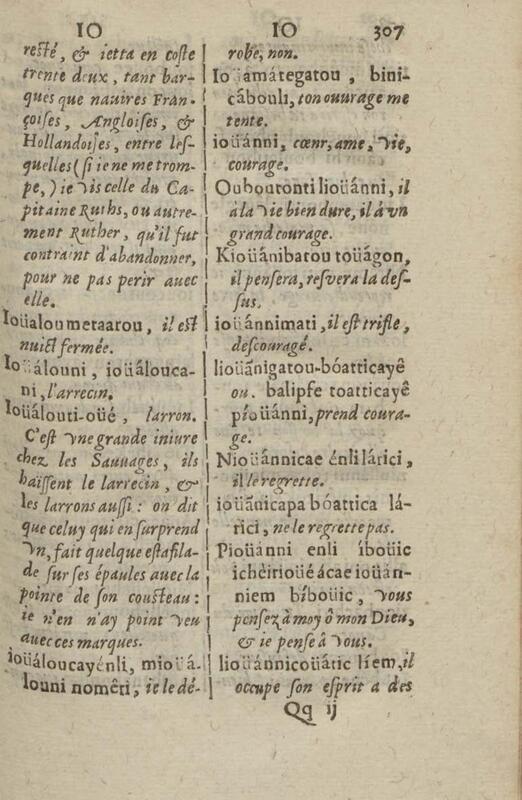 IO IO 307
resté, & ietta en coste
trente deux, tant bar-
ques que nauires Fran-
çoises, Angloises, &
Hollandoises, entre les-
quelles (si ie ne me trom-
pe,) ie vis celle du Ca-
pitaine Ruths, ou autre-
ment Ruther, qu'il fut
contraint d'abandonner,
pour ne pas perir auec
elle.
Ioüaloumetaarou, il est
nuict fermée.
Ioüálouni, ioüálouca-
ni, l'arrecin.
Ioüálouti-oüé, larron.
C'est vne grande iniure
chez les Sauuages, ils
haïssent le larrecin, &
les larrons aussi: on dit
que celuy qui en surprend
vn, fait quelque estafila-
de sur ses épaules auec la
pointe de son cousteau:
ie n'en n'ay point veu
auec ces marques.
ioüáloucayénli, mioüá-
louni nomêti, ie le dé-
robe, non.
Ioüamátegatou, bini-
cábouli, ton ouurage me
tente.
ioüánni, cœur, ame, vie,
courage.
Ouboutonti lioüánni, il
à la vie bien dure, il á vn
grand courage.
Kioüánibatou toüágon,
il pensera, resvera la des-
sus.
ioüánnimati, il est triste,
descouragé.
lioüãnigatou-bóatticayê
ou. balipfe toatticayê
píoüánni, prend coura-
ge.
Nioüánnicae énli látici,
il le regrette.
ioüãnicapa bóattica lá-
rici, ne le regrette pas.
Pioüánni enli íboüic
ichéirioüé ácae ioüán-
niem bíboüic, vous
pensez à moy ô mon Dieu,
& ie pense à vous.
lioüánnicoüátic líem, il
occupe son esprit a des
Qq ij